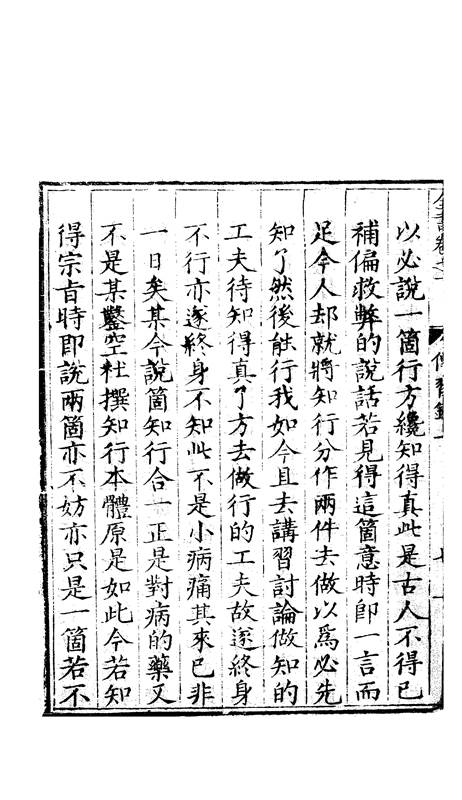 全書卷之一　傳習錄一　七
以必說一箇行方纔知得真此是古人不得已
補偏救弊的說話若見得這箇意時卽一言而
足今人却就將知行分作兩件去做以為必先
知了然後能行我如今且去講習討論做知的
工夫待知得真了方去做行的工夫故遂終身
不行亦遂終身不知此不是小病痛其來已非
一日矣某今說箇知行合一正是對病的藥又
不是某鑿空杜撰知行本體原是如此今若知
得宗旨時即說兩箇亦不妨亦只是一箇若不